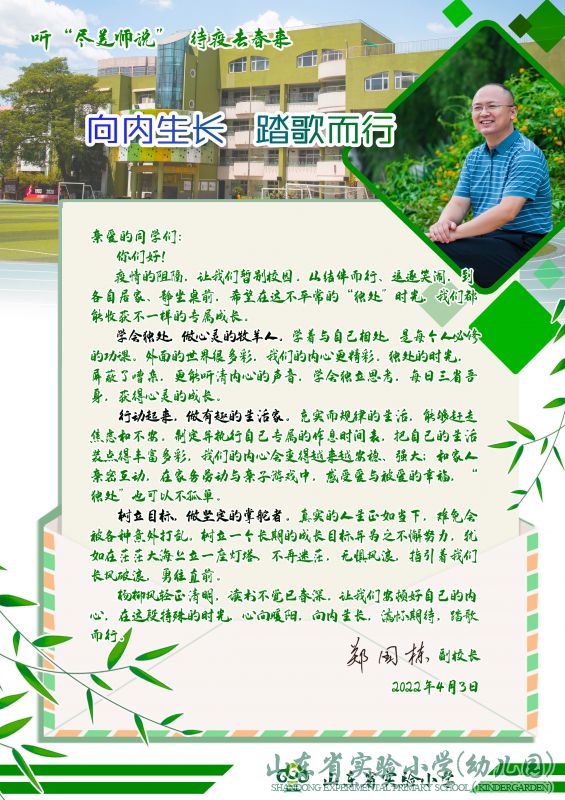 听“尽美师说” 待疫去春来
向内生长 踏歌而行
亲爱的同学们:
你们好!
疫情的阻隔,让我们暂别校园,从结伴而行、追逐笑闹,到
各自居家、静坐桌前,希望在这不平常的“独处”时光,我们都
能收获不一样的专属成长。
学会独处,做心灵的牧羊人。学着与自己相处,是每个人必修
的功课。外面的世界很多彩,我们的内心更精彩。独处的时光,
屏蔽了嘈杂,更能听清内心的声音,学会独立思考,每日三省吾
身,获得心灵的成长。
行动起来,做有趣的生活家。充实而规律的生活,能够赶走
焦虑和不安。制定并执行自己专属的作息时间表,把自己的生活
装点得丰富多彩,我们的内心会变得越来越安稳、强大;和家人
亲密互动,在家务劳动与亲子游戏中,感受爱与被爱的幸福,“
独处”也可以不孤单。
树立目标,做坚定的掌舵者。真实的人生正如当下,难免会
被各种意外打乱,树立一个长期的成长目标并为之不懈努力,犹
如在茫茫大海上立一座灯塔,不再迷茫,无惧风浪,指引着我们
长风破浪,勇往直前。
杨柳风轻正清明,读书不觉已春深。让我们安顿好自己的内
心,在这段特殊的时光,心向暖阳,向内生长,满怀期待,踏歌
而行。
郑国栋 副校长
2022年4月3日
山东省实验小学(幼儿园)
SHANDONG EXPERIMENTAL PRIMARY SCHOOL (KINDERGARDEN)
山东省实验小学